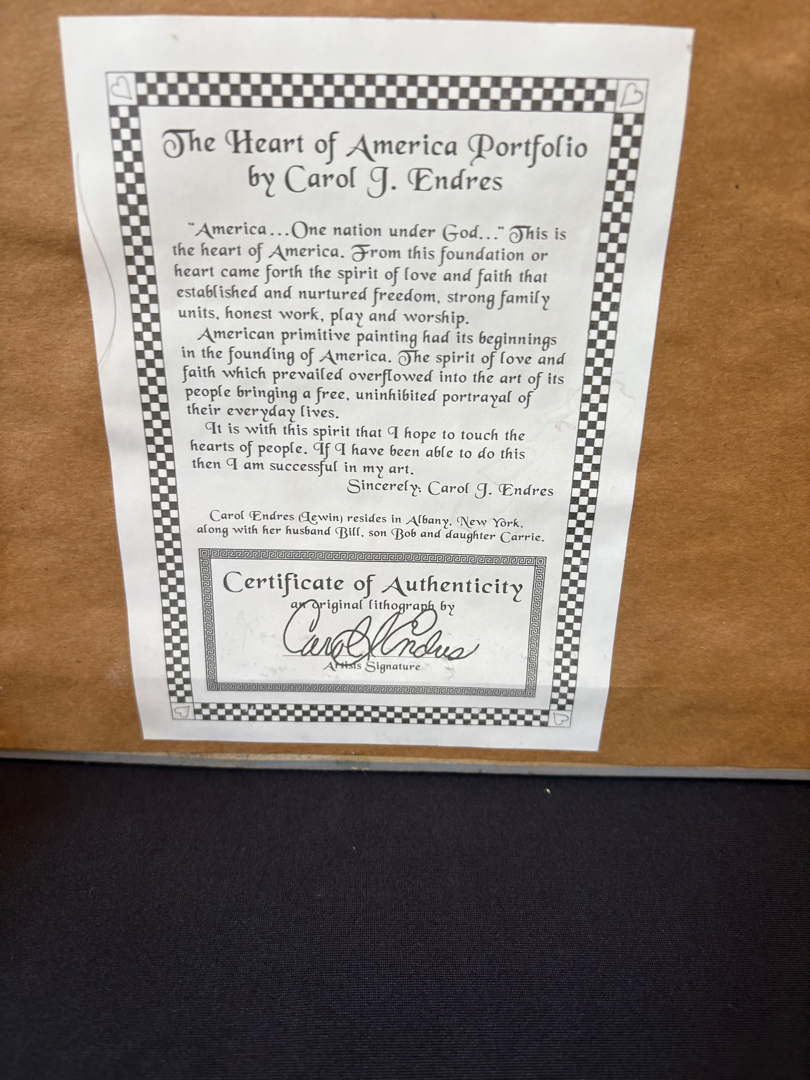 The Heart of America Portfolio
by Carol J. Endres
"America...One nation under God..." This is
the heart of America. From this foundation or
heart came forth the spirit of love and faith that
established and nurtured freedom, strong family
units, honest work, play and worship.
American primitive painting had its beginnings
in the founding of America. The spirit of love and
faith which prevailed overflowed into the art of its
people bringing a free, uninhibited portrayal of
their everyday lives.
It is with this spirit that I hope to touch the
hearts of people. If I have been able to do this
then I am successful in my art.
Sincerely, Carol J. Endres
Carol Endres (Lewin) resides in Albany, New York,
along with her husband Bill, son Bob and daughter Carrie.
Certificate of Authenticity
an original lithograph by
Carol J Endres
Artists Signature